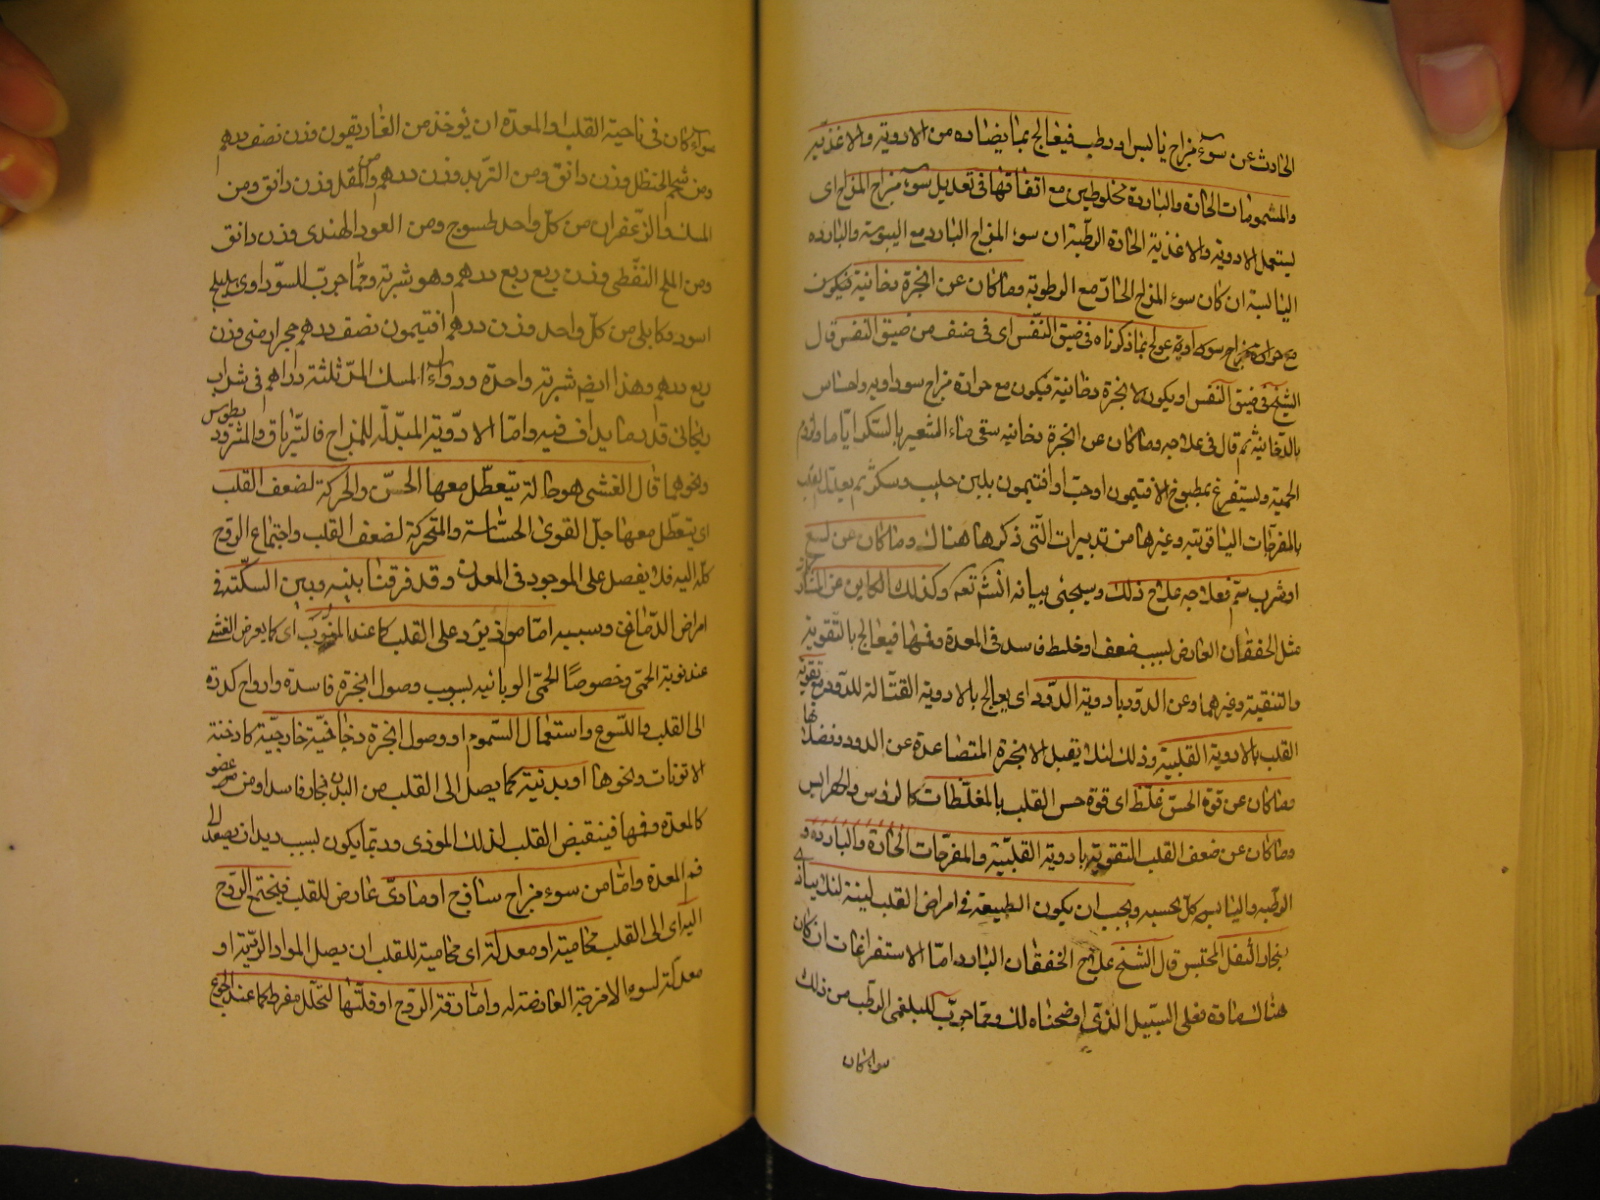 الحادث عن سوء مزاج يابس او رطب فيعالج بما يضاده من الادوية والاغذية
والمشمومات الحارة والباردة مخلوطين مع اتفاقها في تعديل سوء مزاج المزاج اى
يستعمل الادوية والاغذية الحارة الرطبة ان سوء المزاج البارد مع اليبوسة والباردة
اليابسة ان كان سوء المزاج الحار مع الرطوبة وما كان عن ابخرة دخانية فيكون
مع حرارة مزاج سوداوية عولج بما ذكرناه في ضيق النفس اى في صنف من ضيق النفس قال
الشيخ في ضيق النفس او يكون الابخرة دخانية فيكون مع حرارة مزاج سوداويه واحساس
بالدخانية ثم قال في علاجه وما كان عن ابخرة دخانيه سقى ماء الشعير بالسكر اياما ولزوم
الحمية وليستفرغ بمطبوخ الافتيمون او حب او افتيمون بلبن حليب وسكر ثم يعدل القلب
بالمفرحات الياقوتيه وغيرها من تدبيرات التى ذكرها هناك وما كان من لسع
او شرب سم فعلاجه علاج ذلك وسيجئ بيانه انشاء الله تعالى وكذلك الكاين عن المشاركة
مثل الخفقان العارض بسبب ضعف او خلط فاسد في المعدة وفمها فيعالج بالتقوية
والتنقية وغيرهما وعن الدود بادوية الدود اى يعالج بالادوية القتالة للدود مع تقوية
القلب بالادوية القلبية وذلك لئلا يقبل الابخرة المتصاعدة عن الدود ونفضلاتها
وما كان عن قوة الحس غلظ اى قوة حس القلب بالمغلظات كالرؤس والهرايس
وما كان عن ضعف القلب التقوية بادوية القلبية والمفرحات الحارة والباردة و
الرطبه واليابس كل بحسبه ويجب ان يكون الطبيعة في امراض القلب لينة لئلا يتأذى
ببخار الثفل المحتبس قال الشيخ علاج الخفقان البارد اما الاستفراغات ان كان
هناك مادة فعلى السبيل الذى اوضحناه لك ومما جرب للبلغمى الرطب من ذلك
سواء كان
سواء كان في ناحية القلب او المعدة ان يؤخذ من الغاريقون وزن نصف درهم
ومن شحم الحنظل وزن دانق ومن التربد وزن درهم ومن المقل وزن دانق ومن
المسك والزعفران من كل واحد طسوج ومن العود الهندى وزن دانق
ومن الملح النفطى وزن ربع ربع درهم وهو شربة ومما جرب للسوداوى هليلج
اسود وكابلى من كل واحد وزن درهم افتيمون نصف درهم حجر ارمنى وزن
ربع درهم وهذا ايضا شربة واحدة ودواء المسك المر ثلثة دراهم في شراب
ريحانى قدر ما يداف فيه واما الادوية المبدلة للمزاج فالترياق والمثروديطوس
ونحوهما قال الغشى هو حالة يتعطل معها الحس والحركة لضعف القلب
اى يتعطل معها جل القوى الحساسة والمتحركة لضعف القلب واجتماع الروح
كله اليه فلا يفصل على الموجود في المعدن وقد فرقنا بينه وبين السكتة في
امراض الدماغ وسببه اما موذ يرد على القلب كما عند النوب اى كما يعرض الغشى
عند نوبة الحمى وخصوصا الحمى الوبائيه بسبب وصول ابخرة فاسدة وارواح كدرة
الى القلب واللسوع واستعمال السموم او وصول ابخرة دخانية خارجية كادخنة
الاتونات ونحوها او بدنية كما يصل الى القلب من البدن بخار فاسد او من عضو
كالمعدة وفمها فينقبض القلب لذلك الموذى وربما يكون بسبب ديدان يصعد الى
فم المعدة واما من سوء مزاج ساذج او مادى عارض للقلب فيختم الروح
اليه اى الى القلب محامية او معدلة اى محامية للقلب ان يصل المواد الردية او
معدلة لسوء الامزجة العارضة له واما رقة الروح او قلتها لتحلل مفرط كما عند الجوع